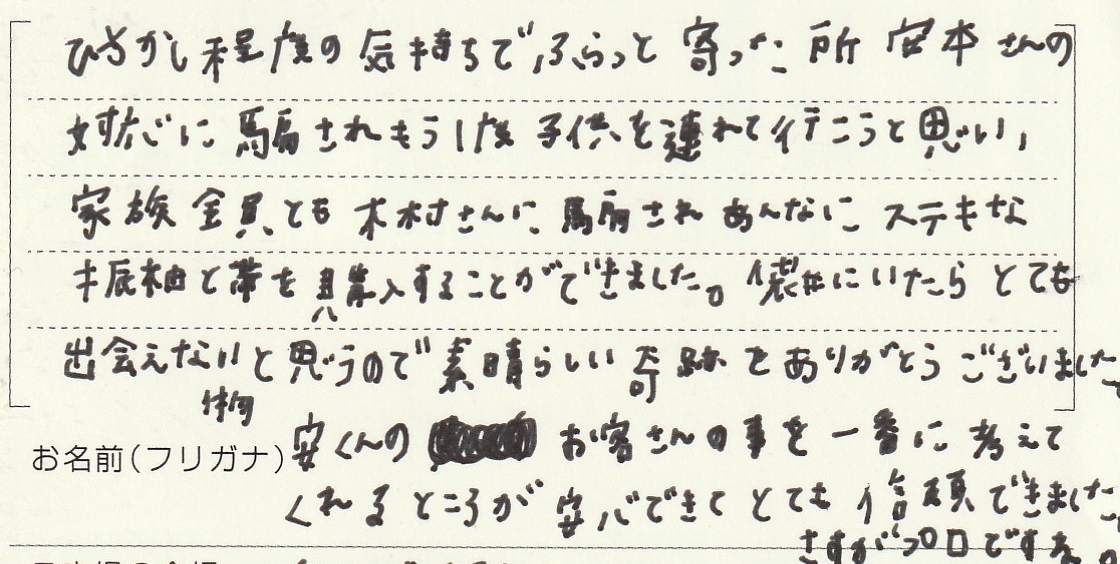 ひやかし程度の気持ちでふらっと寄った所 安本さんの
対応に騙されもう1度子供を連れて行こうと思い、
家族全員とも木村さんに騙されあんなにステキな
振袖と帯を購入することができました。袋井にいたらとても
出会えないと思うので素晴らしい奇跡をありがとうございました
物
お名前(フリガナ)
安くんの お客さんの事を一番に考えて
くれるところが安心できてとても信頼できました
さすがプロですね。